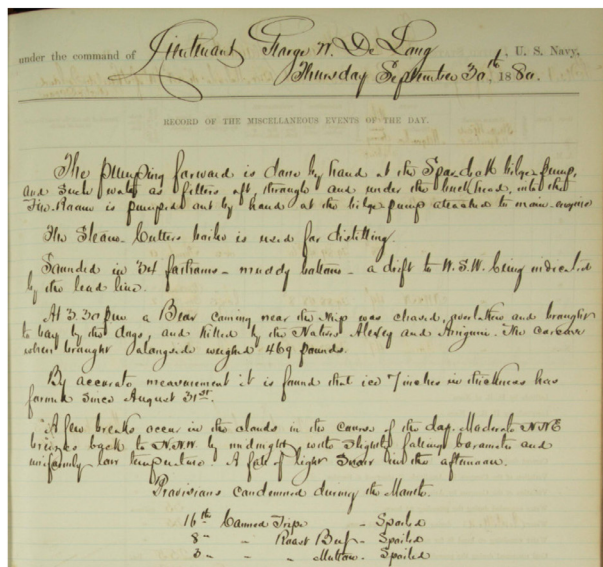 under the command of Lieutenant George W. De Long, U. S. Navy,
Thursday September 30th, 1880.
RECORD OF THE MISCELLANEOUS EVENTS OF THE DAY.
The pumping forward is done by hand at the Spardeck bilge pump,
and such water as filters aft, through and under the bulkhead, into the
Fire-Room is pumped out by hand at the bilge pump attached to main engine
The Steam-Cutters boiler is used for distilling.
Sounded in fathoms - muddy bottom - a drift to W.S.W. being indicated
by the lead line.
At 3.30 pm a Bear coming near the ship was chased, overtaken and brought
to bay by the dogs, and killed by the Natives Alexey and Aniguin. The carcass
when brought alongside weighed 469 pounds.
By accurate measurement it is found that ice 7 inches in thickness has
formed since August 31st.
A few breaks occur in the clouds in the course of the day. Moderate NNE
breezes back to N.N.W. by midnight, with slightly falling barometer and
uniformly low temperature. A fall of light snow in the afternoon.
Provisions condemned during the Month.
16 lb Canned Tripe - Spoiled
8 " " Roast Beef - Spoiled
3 " " Mutton - Spoiled